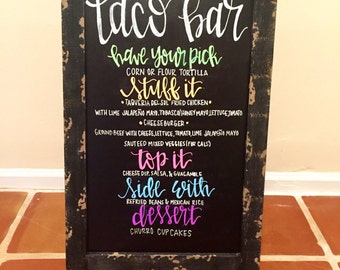 taco bar
have your pick
CORN OR FLOUR TORTILLA
stuff it
• TAQUERIA DEL SOL FRIED CHICKEN •
WITH LIME JALAPEÑO MAYO, TOBASCO/HONEY MAYO, LETTUCE, TOMATO
• CHEESEBURGER •
GROUND BEEF WITH CHEESE, LETTUCE, TOMATO, LIME JALAPEÑO MAYO
SAUTEED MIXED VEGGIES (FOR CALS)
top it
CHEESE DIP, SALSA, & GUACAMOLE
side with
REFRIED BEANS & MEXICAN RICE
dessert
CHURRO CUPCAKES